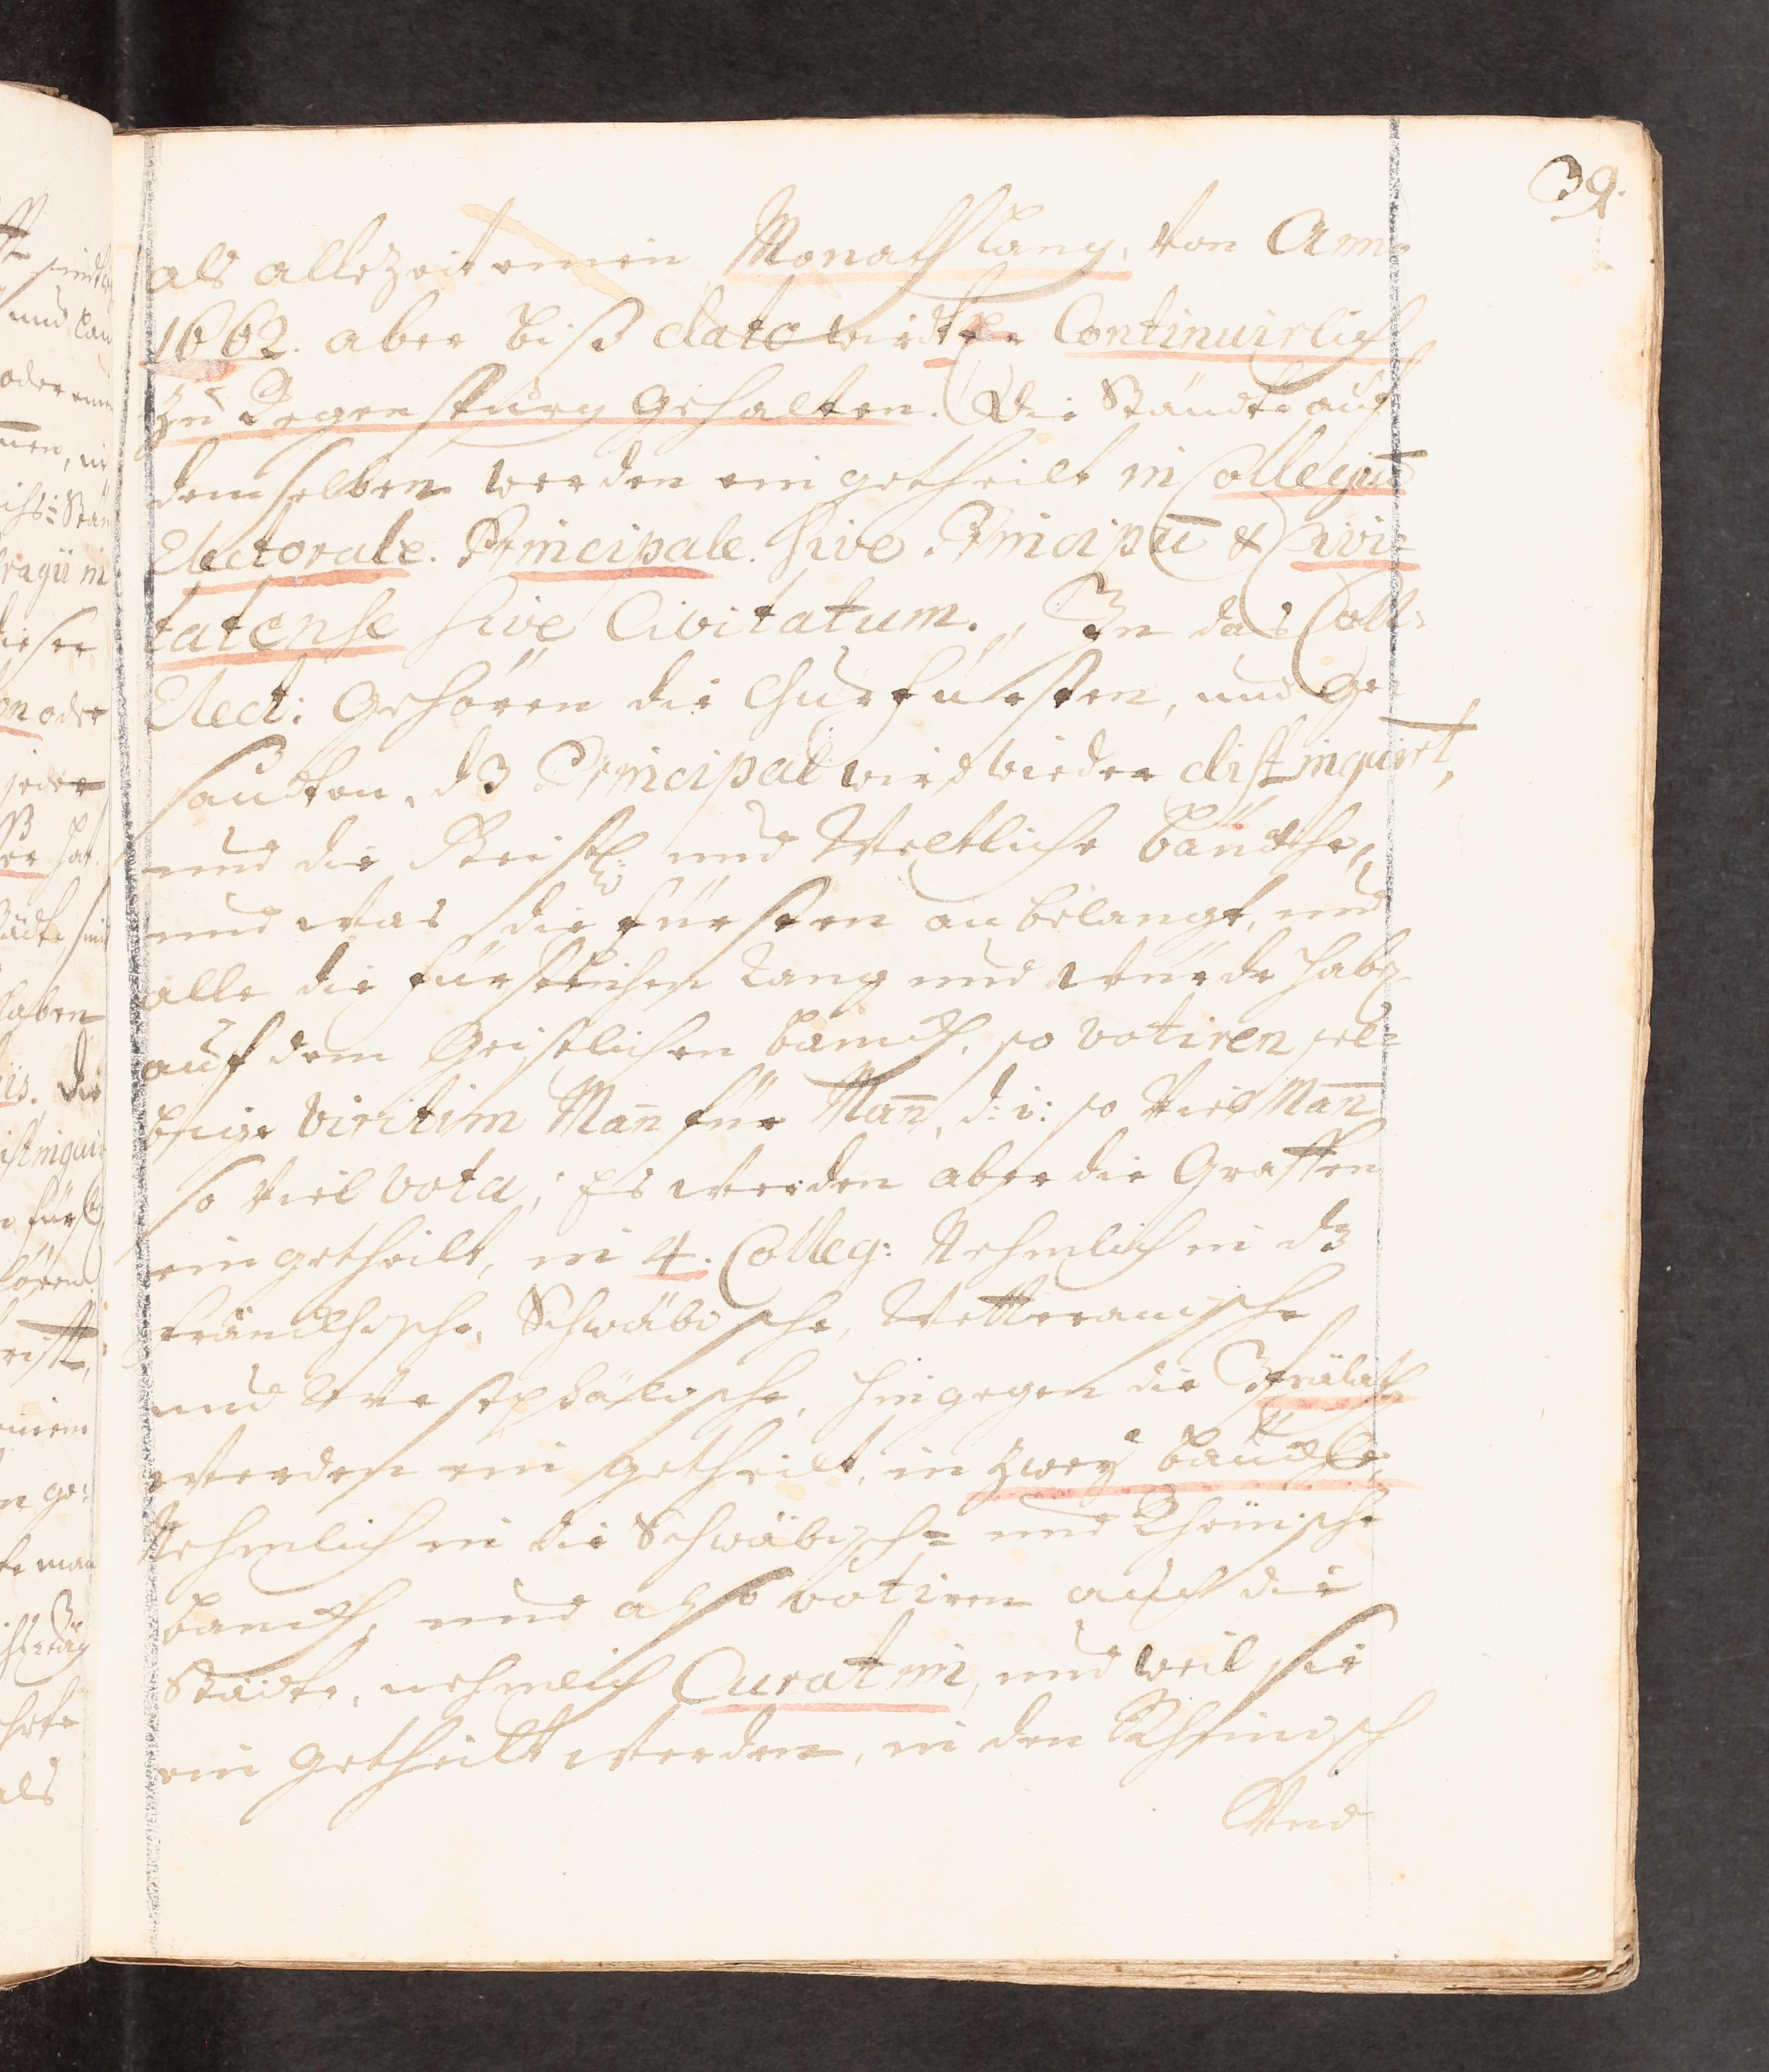 39.
als allezeit einen Monath lang, von Anno
1662. aber biß dato wird er Continuirlich
zu Regenspurg gehalten. Die Ständte auf
demselben werden eingetheilt in Collegiū
Electorale. Principale. sive Principū & Civi=
tatense sive Civitatum. In das Coll:
Elect: gehören die Churfürsten, und Ge
sandten. dz Principal wird wieder distinguirt,
und die Geistl: und Weltliche bänckhe,
und was die fürsten anbelangt, und
alle die fürstlichen Rang und würde haben
auf dem Geistlichen banckh, so votiren sel=
bige viritim Man̄ für Man̄, d: i: so viel Man̄
so viel vota; Es werden aber die Graffen
eingetheilt, in 4. Colleg: Nehmlich in dz
fränckhische, Schwäbische, Wetterauische
und Westphälische, hingegen die Prälath
werden ein getheilt, in zwey bänckhe,
Nehmlich in die Schwäbisch= und Rheinische
banckh, und also votiren auch die
Städte, nehmlich Curatim, und weil sie
ein getheilt werden, in den Rheinisch
Und